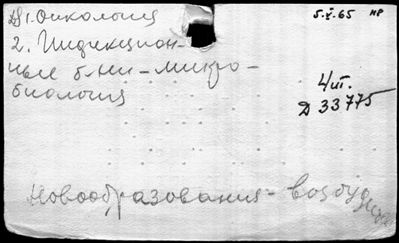 1. Онкология
5.V.65 нр
2. Инфекцион-
ные б-ни - микро-
биология
4/III.
Д 33775
Новообразования - возбудители